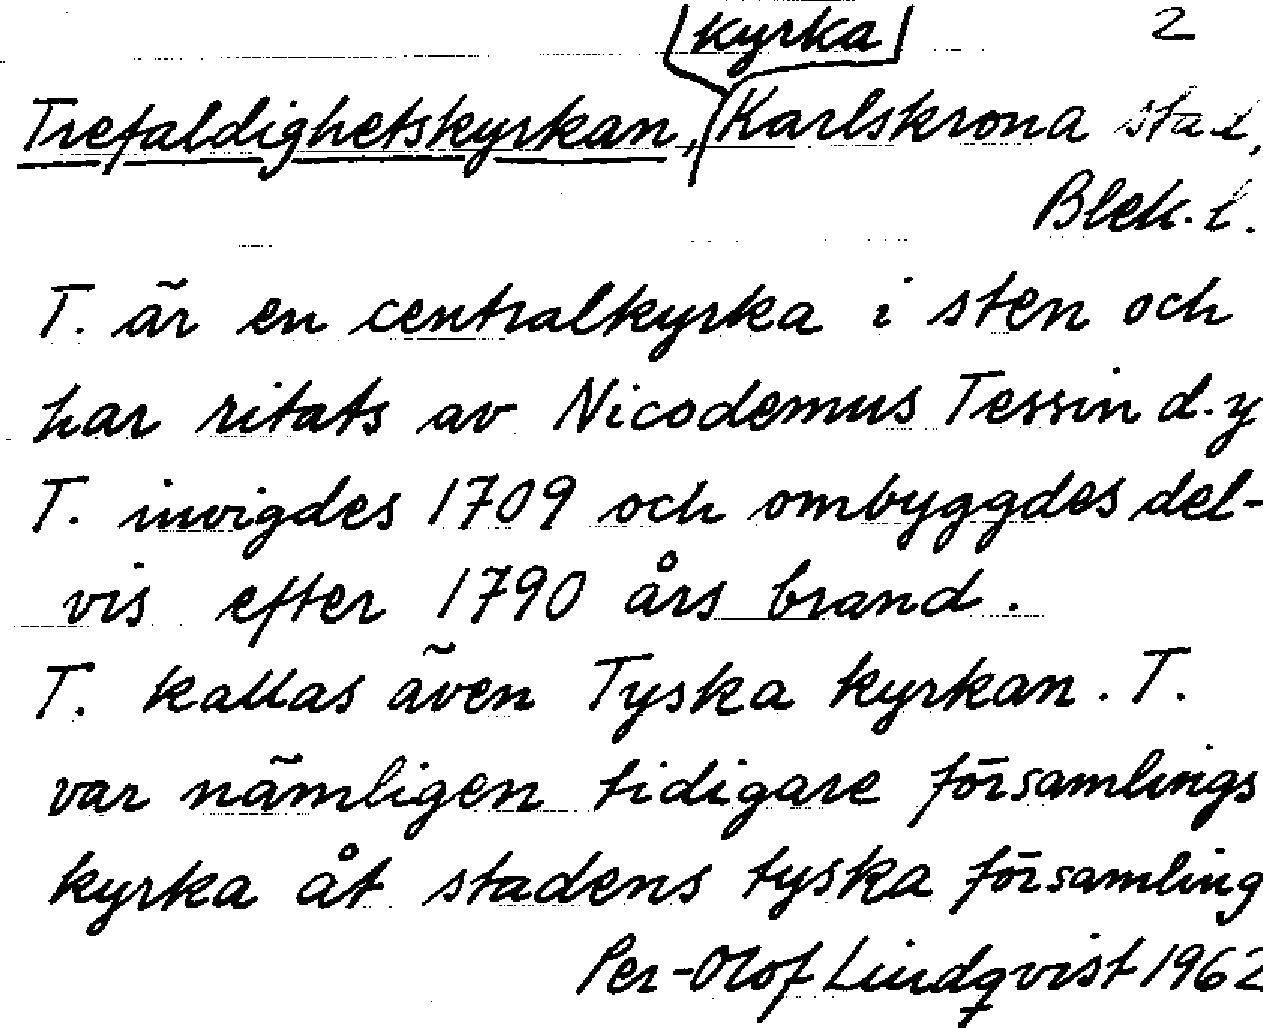 kyrka 2
Trefaldighetskyrkan, Karlskrona stad,
Blek. l.
T. är en centralkyrka i sten och
har ritats av Nicodemus Tessin d.y
T. invigdes 1709 och ombyggdes del-
vis efter 1790 års brand.
T. kallas även Tyska kyrkan. T.
var nämligen tidigare församlings
kyrka åt stadens tyska församling
Per-Olof Lindqvist 1962